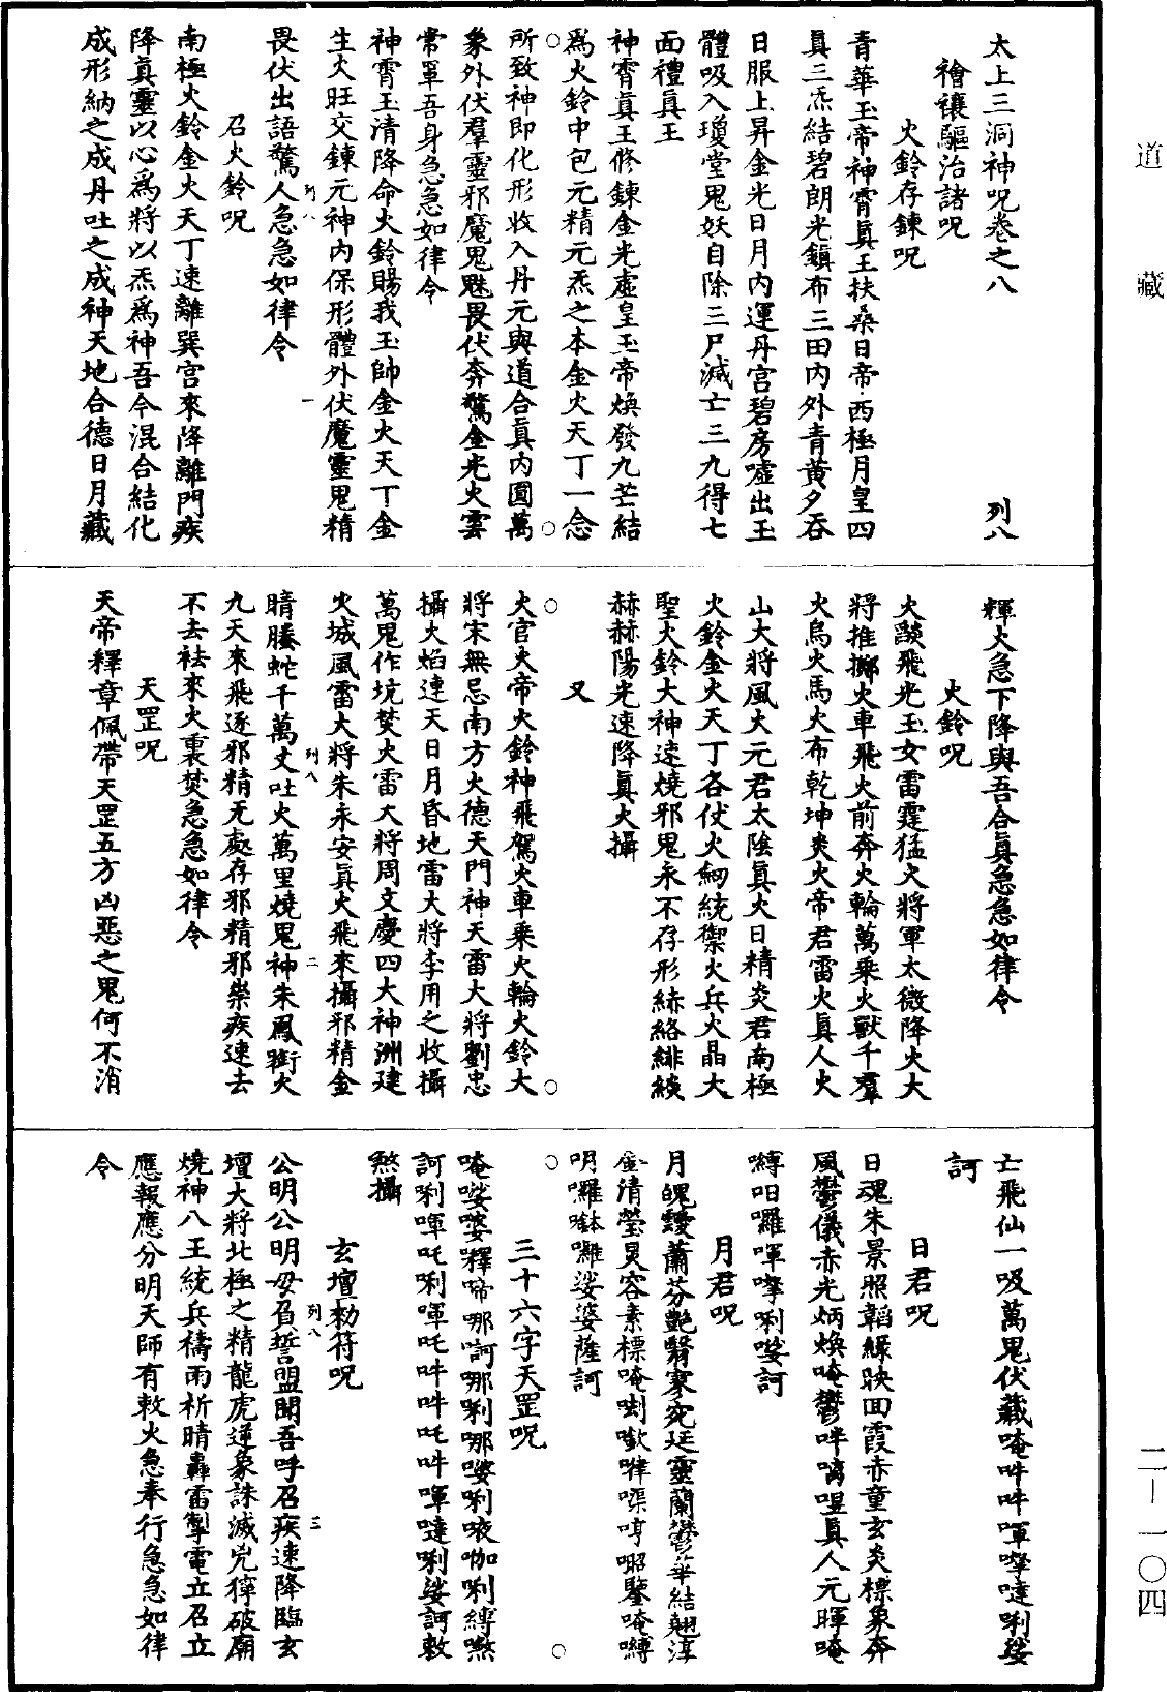 道藏
二—一〇四
太上三洞神呪卷之八　列八
禬禳驅治諸呪
火鈴存鍊呪
青華玉帝神霄眞王扶桑日帝西極月皇四
眞三炁結碧朗光鎮布三田內外青黃夕吞
日服上昇金光日月內運丹宮碧房噓出玉
體吸入瓊堂鬼妖自除三尸滅亡三九得七
面禮眞王
神霄眞王修鍊金光虛皇玉帝煥發九芒結
爲火鈴中包元精元炁之本金火天丁一念
所致神即化形收入丹元與道合眞內圓萬
象外伏羣靈邪魔鬼魅畏伏奔驚金光火雲
常罩吾身急急如律令
神霄玉清降命火鈴賜我玉帥金火天丁金
生火旺交鍊元神內保形體外伏魔靈鬼精
列八　一
畏伏出語驚人急急如律令
召火鈴呪
南極火鈴金火天丁速離巽宮來降離門疾
降眞靈以心爲將以炁爲神吾今混合結化
成形納之成丹吐之成神天地合德日月藏
輝火急下降與吾合眞急急如律令
火鈴呪
火燄飛光玉女雷霆猛火將軍太微降火大
將推擲火車飛火前奔火輪萬乘火獸千羣
火烏火馬火布乾坤炎火帝君雷火眞人火
山大將風火元君太陰眞火日精炎君南極
火鈴金火天丁各仗火劒統禦火兵火晶大
聖火鈴大神速燒邪鬼永不存形絲絡緋緂
赫赫陽光速降眞火攝
又
火官火帝火鈴神飛駕火車乘火輪火鈴大
將宋無忌南方火德天門神天雷大將劉忠
攝火焰連天日月昏地雷大將李用之收攝
萬鬼作坑焚火雷大將周文慶四大神洲建
火城風雷大將朱永安眞火飛來攝邪精金
列八　二
睛螣蛇千萬丈吐火萬里燒鬼神朱鳳銜火
九天來飛逐邪精无處存邪精邪祟疾速去
不去袪來火裏焚急急如律令
天罡呪
天帝釋章佩帶天罡五方凶惡之鬼何不消
亡飛仙一吸萬鬼伏藏唵吽吽㖇㘄噠唎娑
訶
日君呪
日魂朱景照韜綠映回霞赤童玄炎標象奔
風鬱儀赤光炳煥唵鬱吽嘀哩眞人元暉唵
嚩㕽囉㖇㘄唎娑訶
月君呪
月魄䕶蕭芬艷翳寥宛廷靈蘭鬱華結翹淳
金清瑩炅容素標唵嘞㘈嘽㗲哼㗬鑒唵嚩
明囉㗶囉娑婆薩訶
三十六字天罡呪
唵娑婆釋啼哪訶哪唎哪婆唎液咖唎縛煞
訶唎㖇吒唎㖇吒吽吽吒吽㖇噠唎娑訶敕
煞攝
玄壇勑符呪
公明公明毋負誓盟聞吾呼召疾速降臨玄
列八　三
壇大將北極之精龍虎逆象誅滅兇獰破廟
燒神八王統兵禱雨祈晴轟雷掣電立召立
應報應分明天師有敕火急奉行急急如律
令